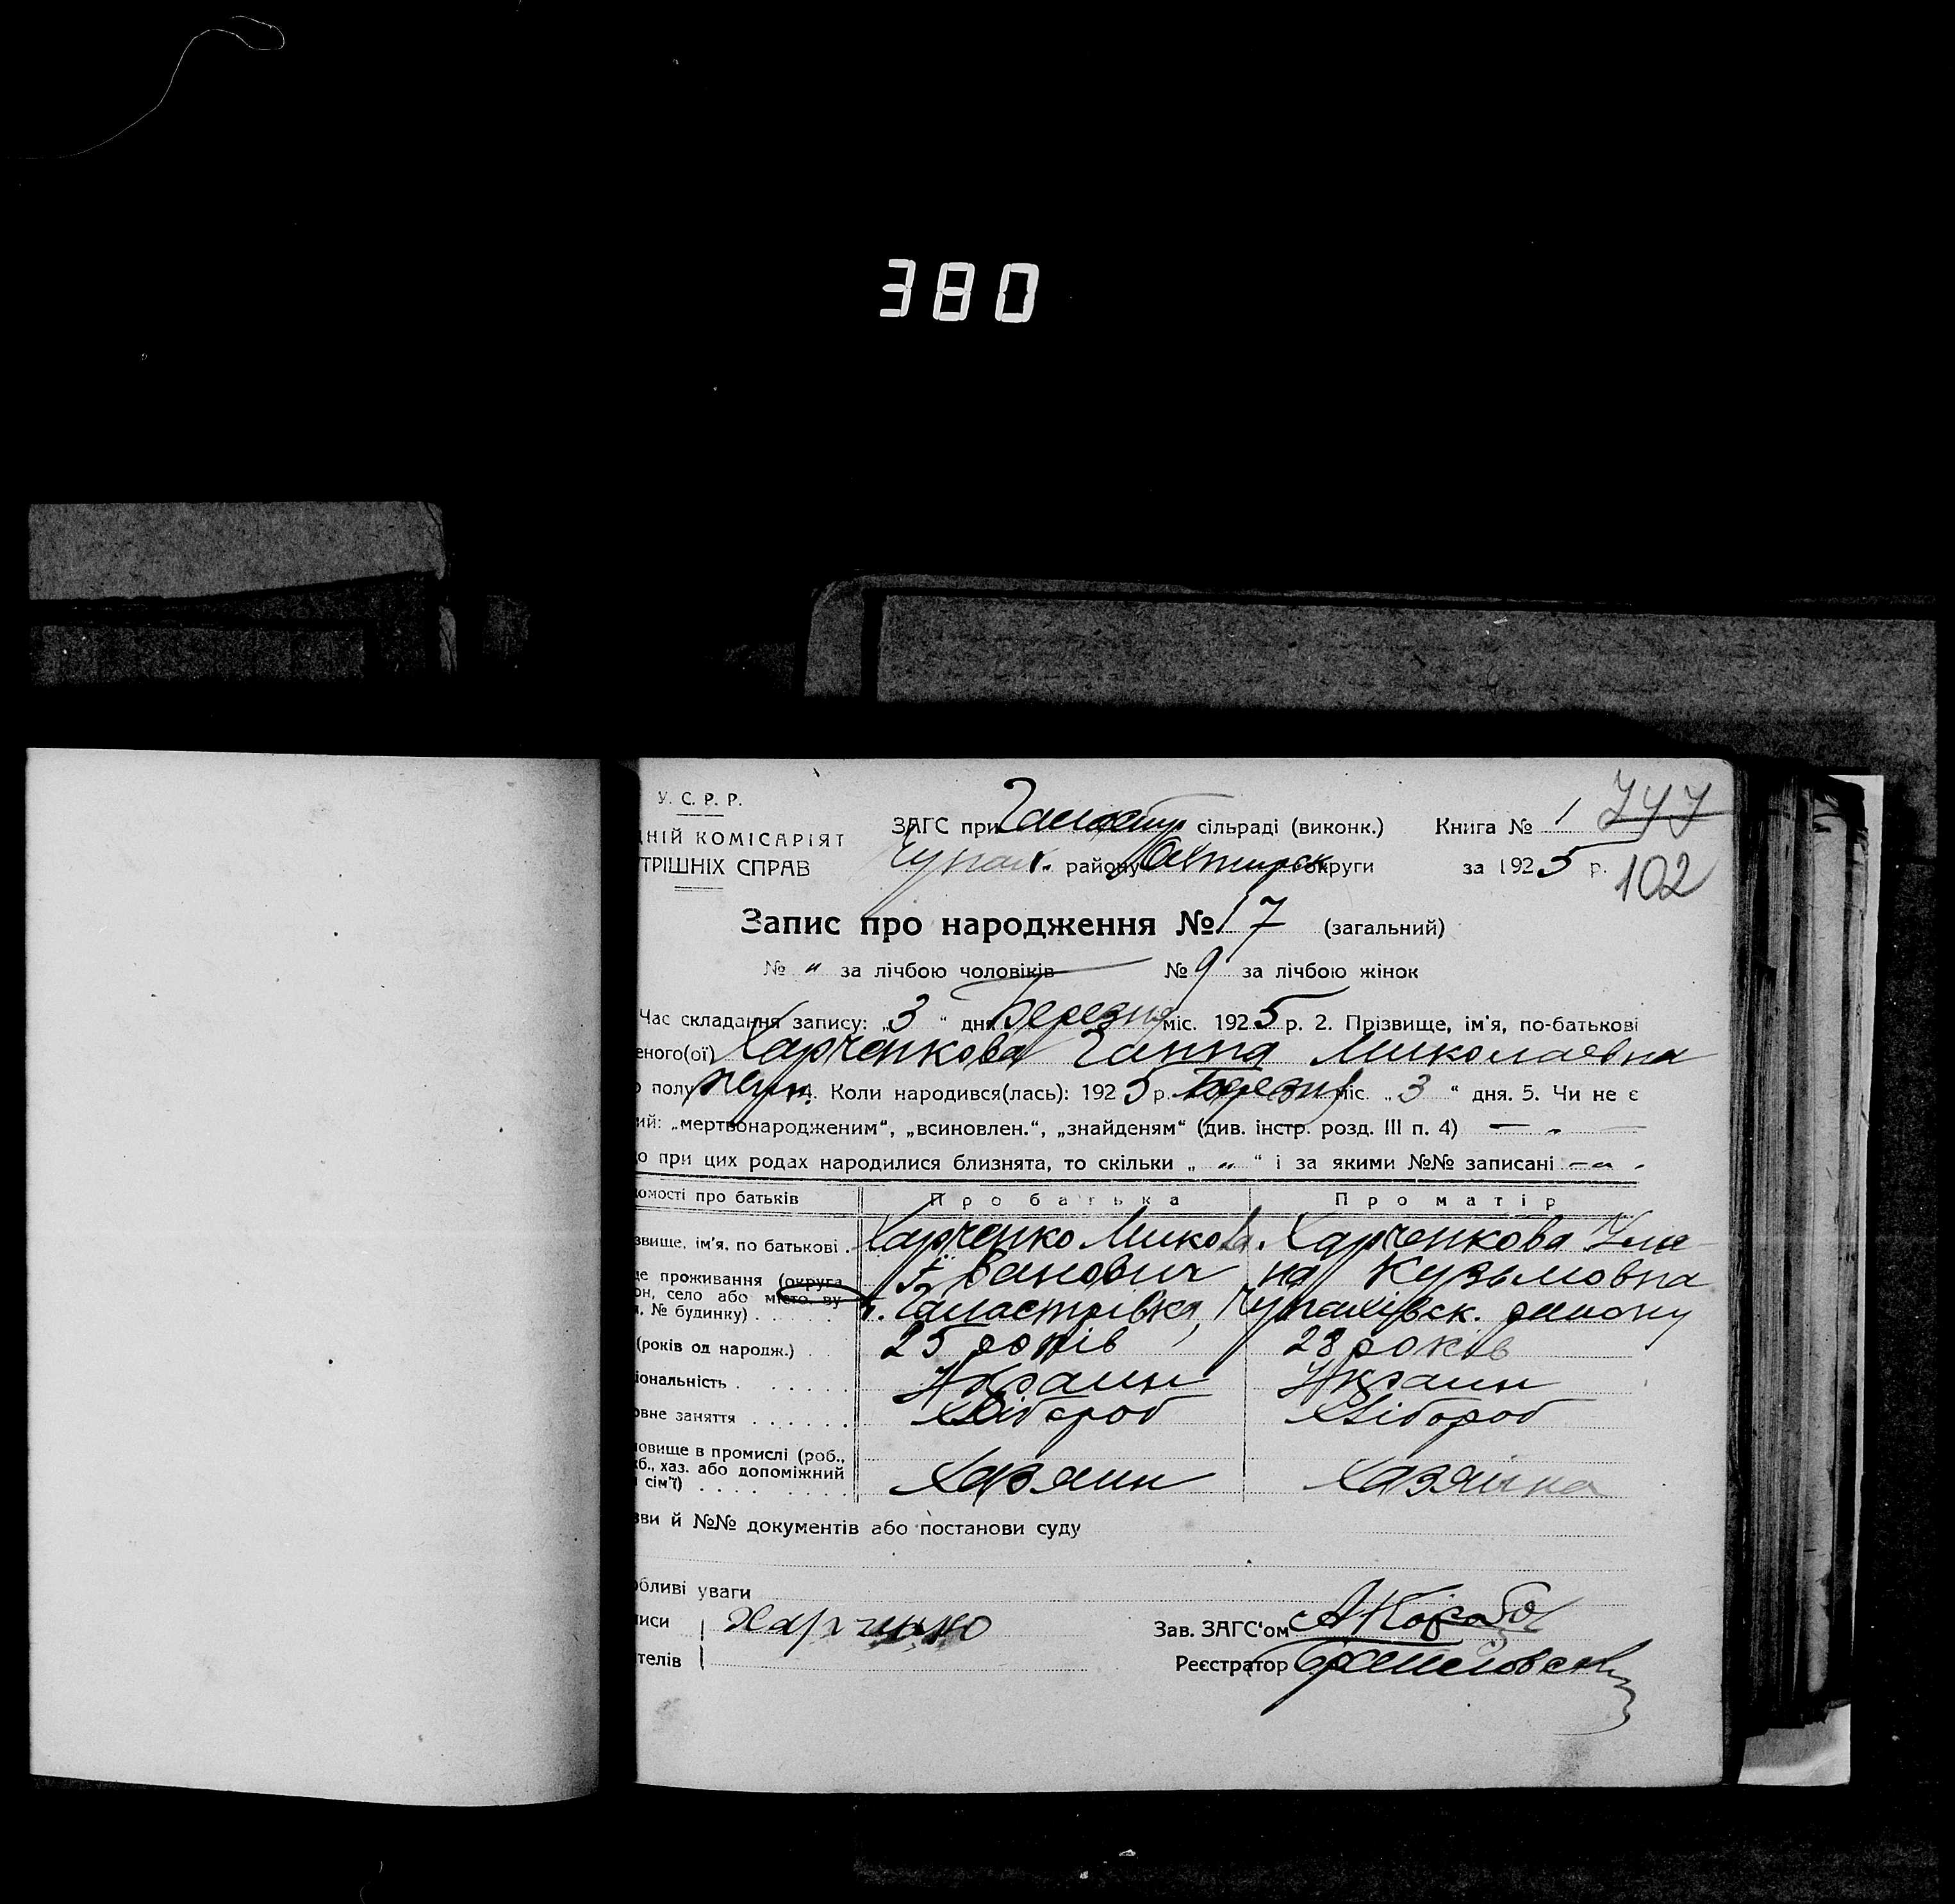 380
У. С. Р. Р.
ДНІЙ КОМІСАРІЯТ
ТРІШНІХ СПРАВ
ЗАГС при сільраді (виконк.) Книга № 1 747
Чупах. району Охтирск округи за 1925 р. 102
Запис про народження № 17 (загальний)
№ " за лічбою чоловіків № 9 за лічбою жінок
Час складання запису: „3“ дня Березня міс. 1925 р. 2. Прізвище, ім'я, по-батькові
еного(ої) Харченкова Ганна Миколаевна
полу 4. Коли народився(лась): 1925 р. Березня міс. „3“ дня. 5. Чи не є
ий: „мертвонародженим“, „всиновлен.“, „знайденям“ (див. інстр. розд. III п. 4) — „ —
о при цих родах народилися близнята, то скільки „ „ “ і за якими №№ записані — „ .
домості про батьків Про батька Про матір
звище, ім'я, по батькові . Харченко Микола. Харченкова Уля-
Іванович на Кузьмовна
це проживання (округа,
он, село або місто, ву
, № будинку) . . . . . Галастрівка, Чупахівск. району
(років од народж.) . . 25 років 28 років
іональність . . . . . . Украин Украин
овне заняття . . . . . . Хлібороб Хлібороб
овище в промислі (роб.,
жб., хаз. або допоміжний
сім'ї) . . . . . . . . Хазяин Хазяйка
зви й №№ документів або постанови суду
обливі уваги
писи Харченко Зав. ЗАГС'ом
телів Реєстратор